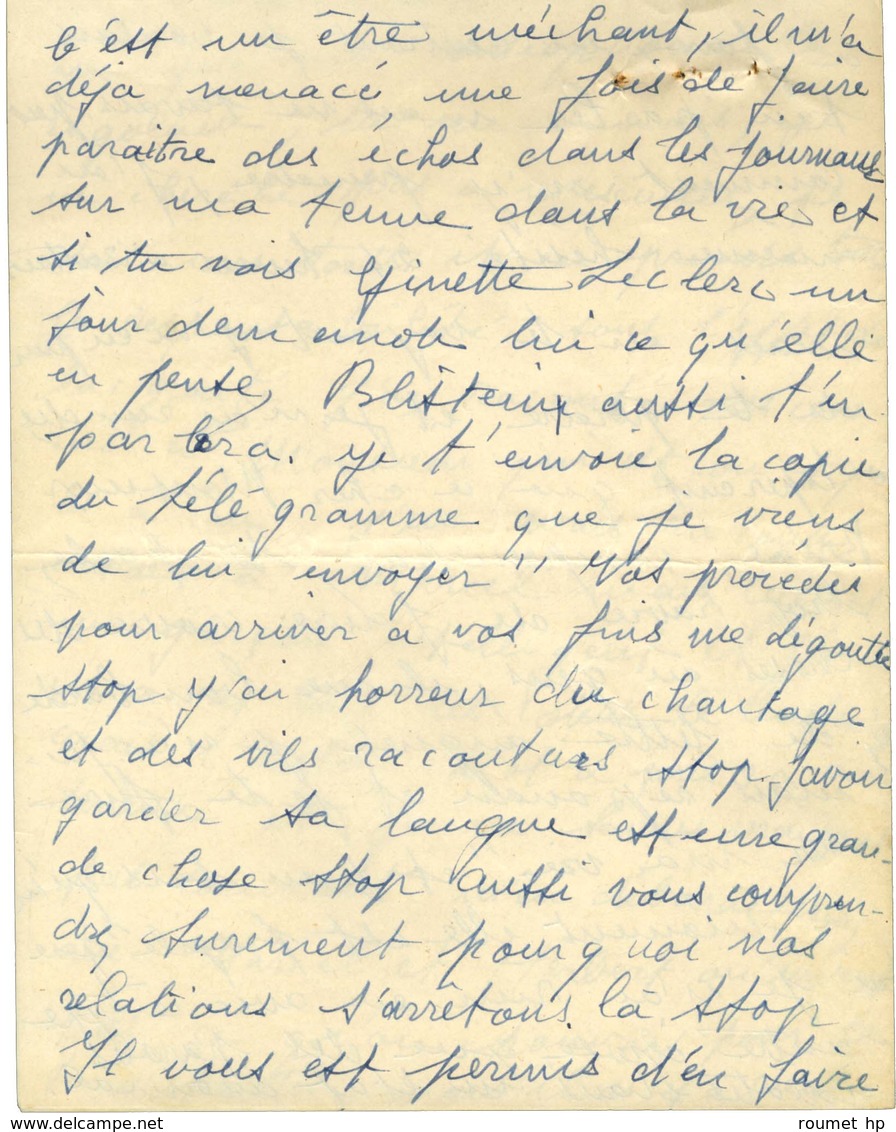 c'est un être méchant, il m'a
déja menacé une fois de faire
paraitre des échos dans les journaux
sur ma tenue dans la vie et
si tu vois Ginette Leclerc un
jour demande lui ce qu'elle
en pense, Blistein aussi t'en
parlera. Je t'envoie la copie
du télégramme que je viens
de lui envoyer " Vos procédés
pour arriver a vos fins me dégoutte
stop J'ai horreur du chantage
et des vils racontars stop Savoir
garder sa langue est une gran-
de chose stop aussi vous compren-
drez surement pourquoi nos
relations s'arrêtons là stop
Il vous est permis d'en faire
www.delcampe.net
roumet hp